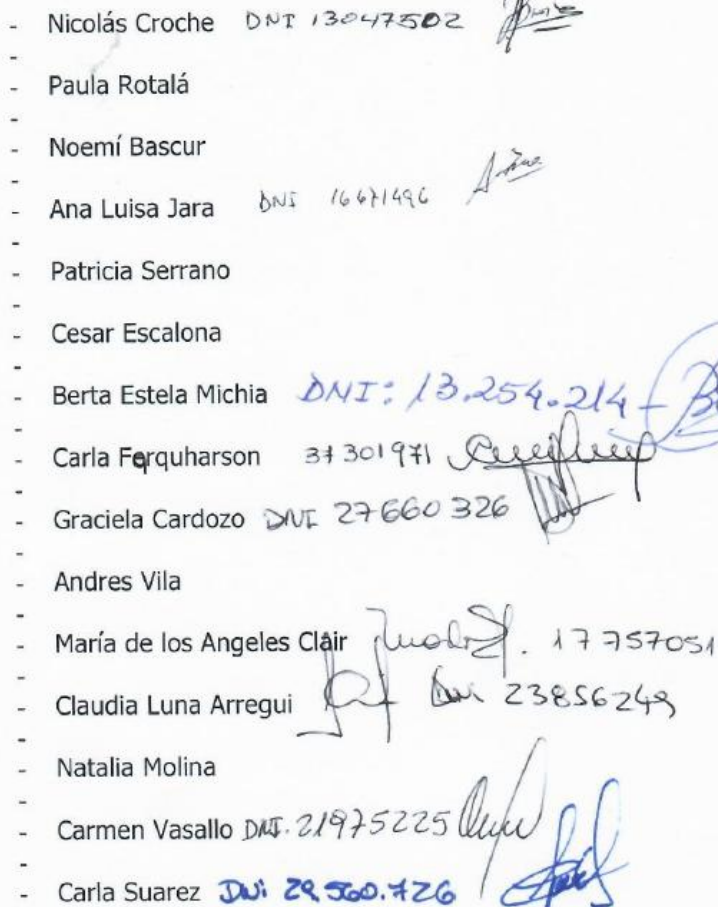 - Nicolás Croche DNI 13047502
-
- Paula Rotalá
-
- Noemí Bascur
-
- Ana Luisa Jara DNI 16671496
-
- Patricia Serrano
-
- Cesar Escalona
-
- Berta Estela Michia DNI: 13.254.214 -
-
- Carla Farquharson 37301971
-
- Graciela Cardozo DNI 27660326
-
- Andres Vila
-
- María de los Angeles Clair 17757051
-
- Claudia Luna Arregui DNI 23856249
-
- Natalia Molina
-
- Carmen Vasallo DNI. 21975225
-
- Carla Suarez DNi 29.560.726